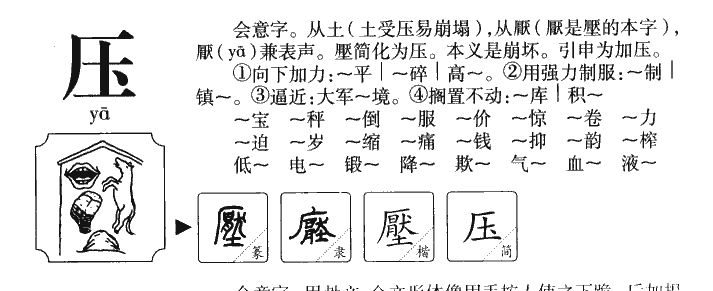 压
yā
会意字。从土(土受压易崩塌),从厭(厭是壓的本字),
厭(yā)兼表声。壓简化为压。本义是崩坏。引申为加压。
①向下加力:～平|～碎|高～。②用强力制服:～制|
镇～。③逼近:大军～境。④搁置不动:～库|积～
～宝 ～秤 ～倒 ～服 ～价 ～惊 ～卷 ～力
～迫 ～岁 ～缩 ～痛 ～钱 ～抑 ～韵 ～榨
低～ 电～ 锻～ 降～ 欺～ 气～ 血～ 液～
壓 篆
壓 隶
壓 楷
压 简